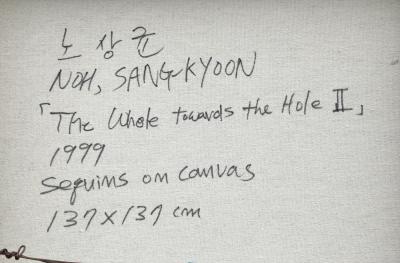 노상균
NOH, SANG-KYOON
「The Whole towards the Hole Ⅱ」
1999
sequins on canvas
137×137 cm